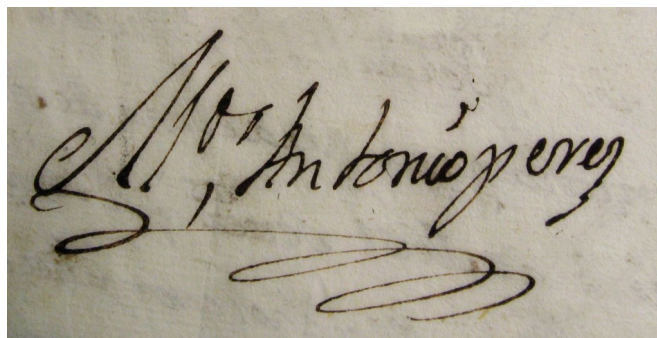 Mᵒˢ Antonio perez